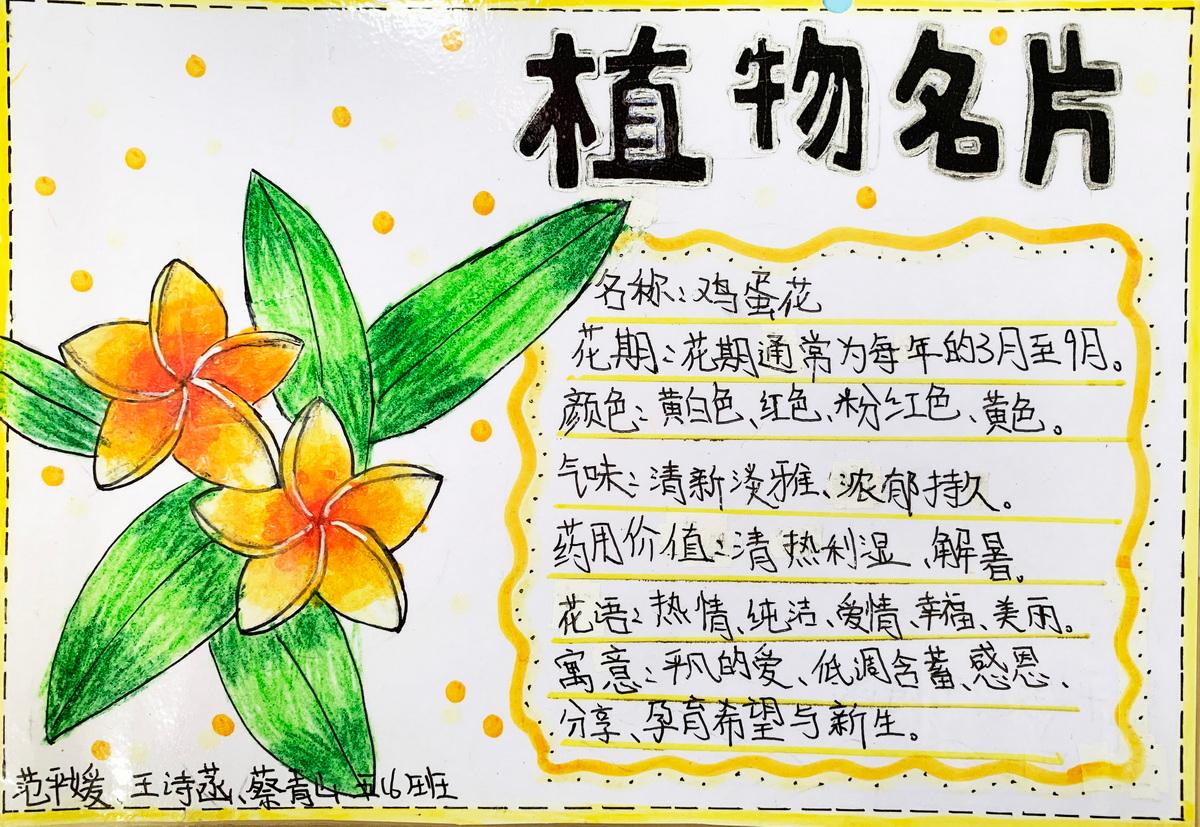 植物名片
名称:鸡蛋花
花期:花期通常为每年的3月至9月。
颜色:黄白色、红色、粉红色、黄色。
气味:清新淡雅、浓郁持久。
药用价值:清热利湿、解暑。
花语:热情、纯洁、爱情、幸福、美丽。
寓意:平凡的爱、低调含蓄、感恩、
分享、孕育希望与新生。
范平媛、王诗菡、蔡青 班